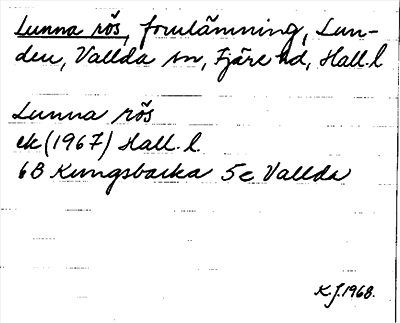 Lunna rös, fornlämning, Lun-
den, Vallda sn, Fjäre hd, Hall. l
Lunna rös
ek (1967) Hall. l.
6B Kungsbacka 5e Vallda
K.J. 1968.